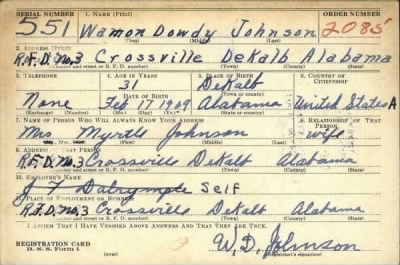 SERIAL NUMBER 1. NAME (Print) ORDER NUMBER
551 Wamon Dowdy Johnson 2085
(First) (Middle) (Last)
2. ADDRESS (Print)
R.F.D. No. 3 Crossville DeKalb Alabama
(Number and street or R. F. D. number) (Town) (County) (State)
3. TELEPHONE 4. AGE IN YEARS 5. PLACE OF BIRTH 6. COUNTRY OF CITIZENSHIP
31 DeKalb
DATE OF BIRTH (Town or county)
None Feb 17 1909 Alabama United States A
(Exchange) (Number) (Mo.) (Day) (Yr.) (State or country)
7. NAME OF PERSON WHO WILL ALWAYS KNOW YOUR ADDRESS 8. RELATIONSHIP OF THAT PERSON
Mrs Myrtle Johnson wife
(Mr., Mrs., Miss) (First) (Middle) (Last)
9. ADDRESS OF THAT PERSON
R.F.D. No. 3 Crossville DeKalb Alabama
(Number and street or R. F. D. number) (Town) (County) (State)
10. EMPLOYER'S NAME
J F Dalrymple Self
11. PLACE OF EMPLOYMENT OR BUSINESS
R.F.D. No. 3 Crossville DeKalb Alabama
(Number and street or R. F. D. number) (Town) (County) (State)
I AFFIRM THAT I HAVE VERIFIED ABOVE ANSWERS AND THAT THEY ARE TRUE.
REGISTRATION CARD
D. S. S. Form 1
W. D. Johnson
(Registrant's signature)